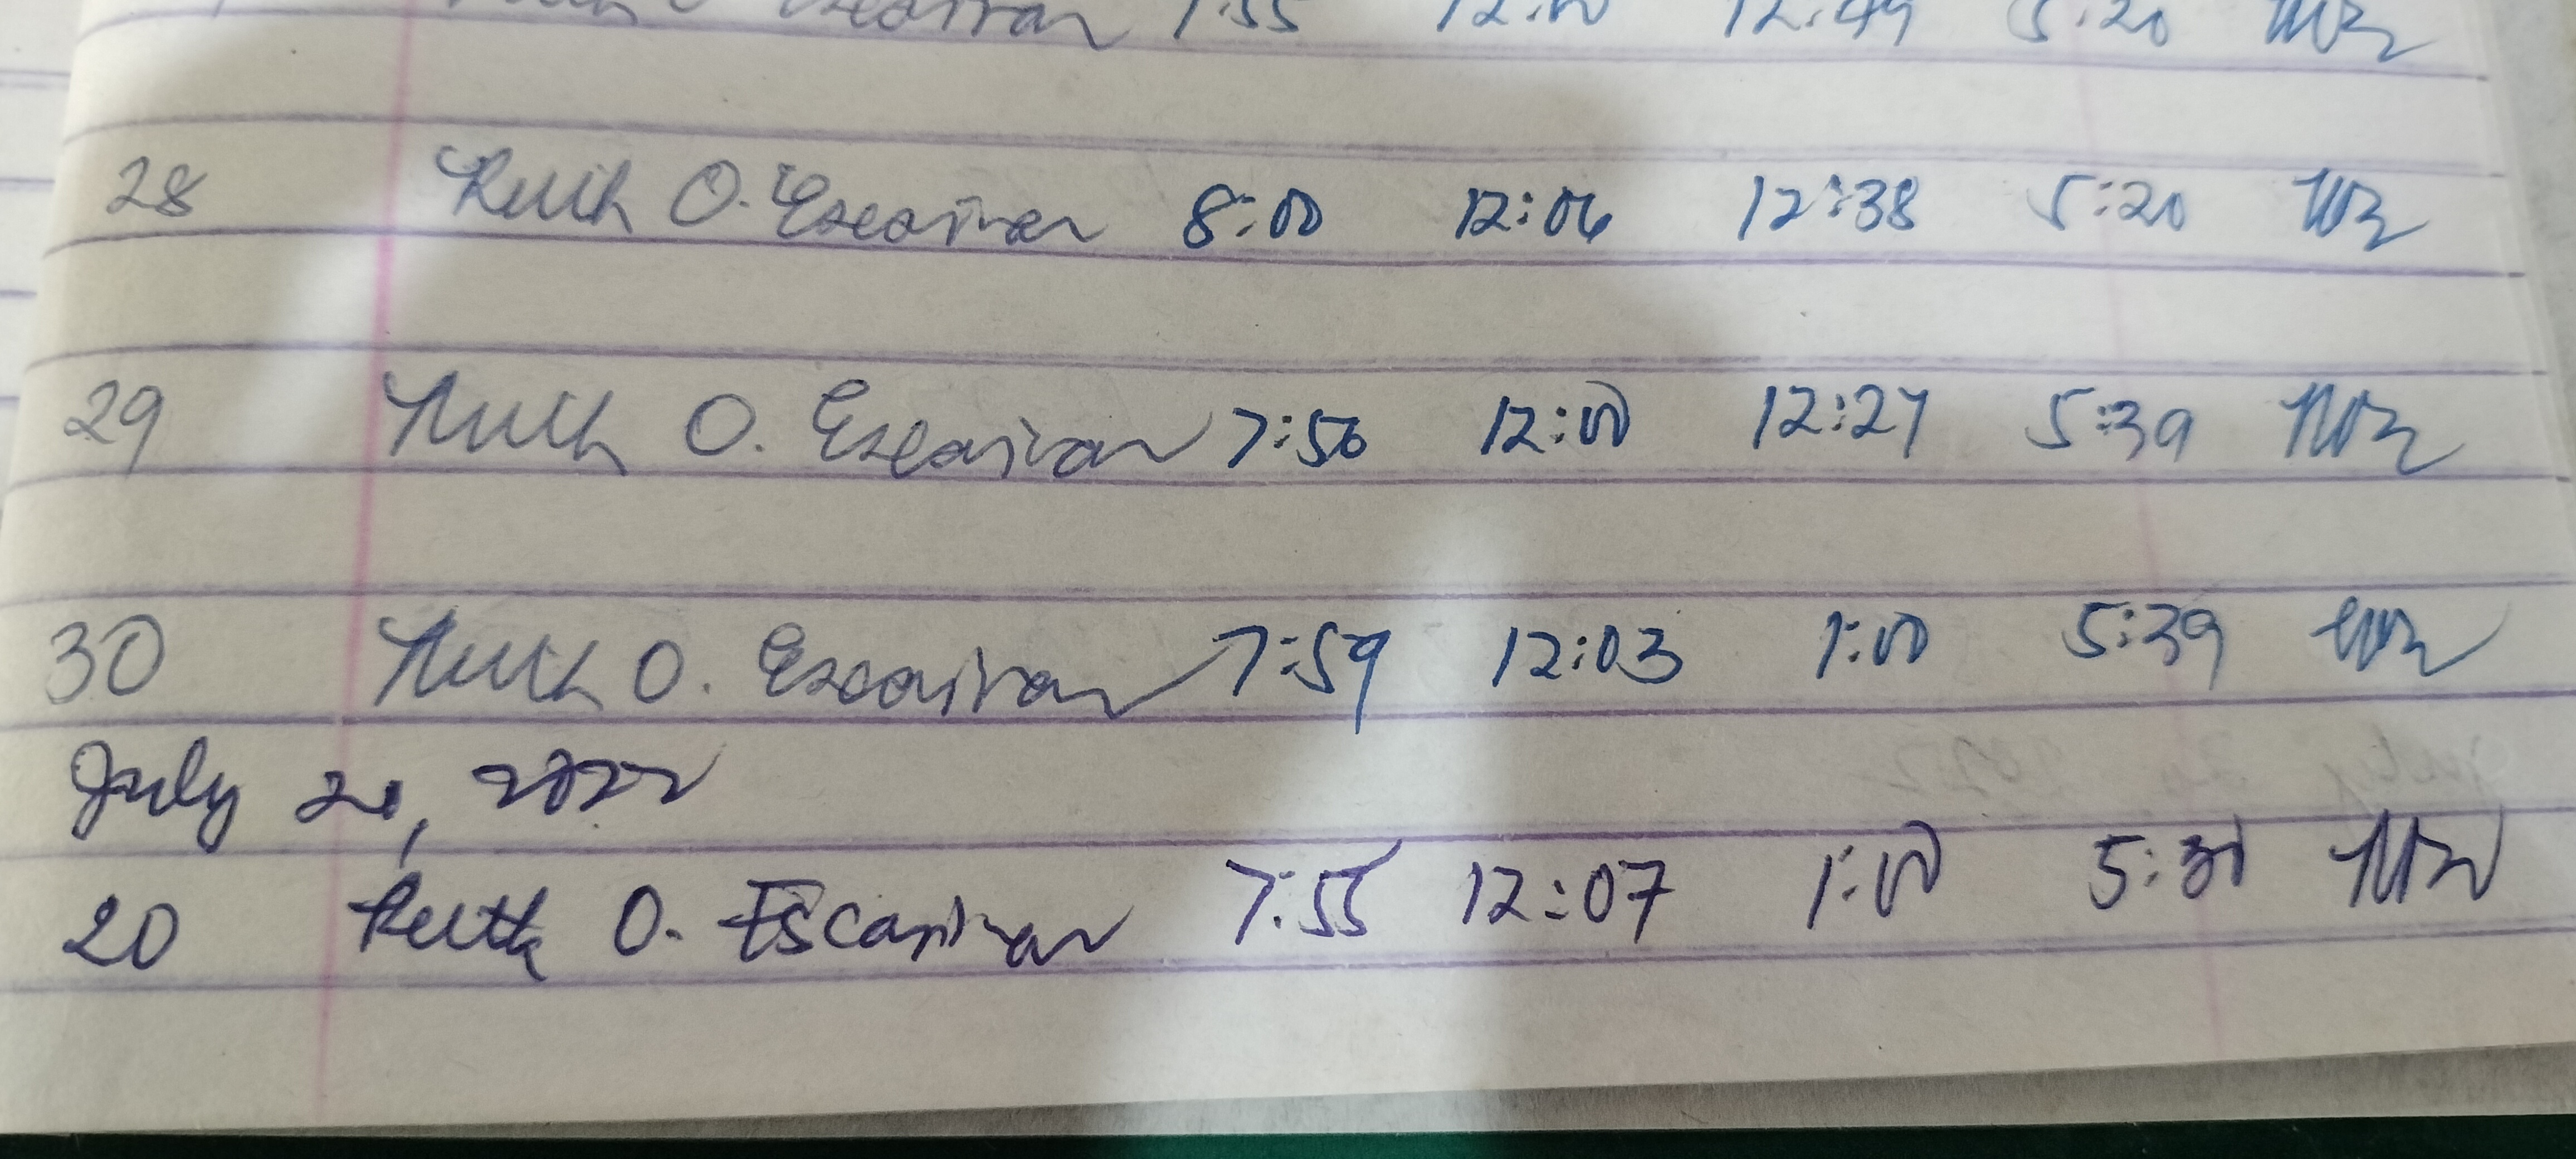 7:55 12:00 12:49 5:20
28 Ruth O. Escarivan 8:00 12:06 12:38 5:20
29 Ruth O. Escarivan 7:50 12:00 12:27 5:39
30 Ruth O. Escarivan 7:59 12:03 1:00 5:39
July 20, 2022
20 Ruth O. Escarivan 7:55 12:07 1:00